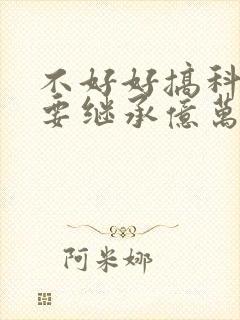 不好好搞科
要继承億萬
阿米娜